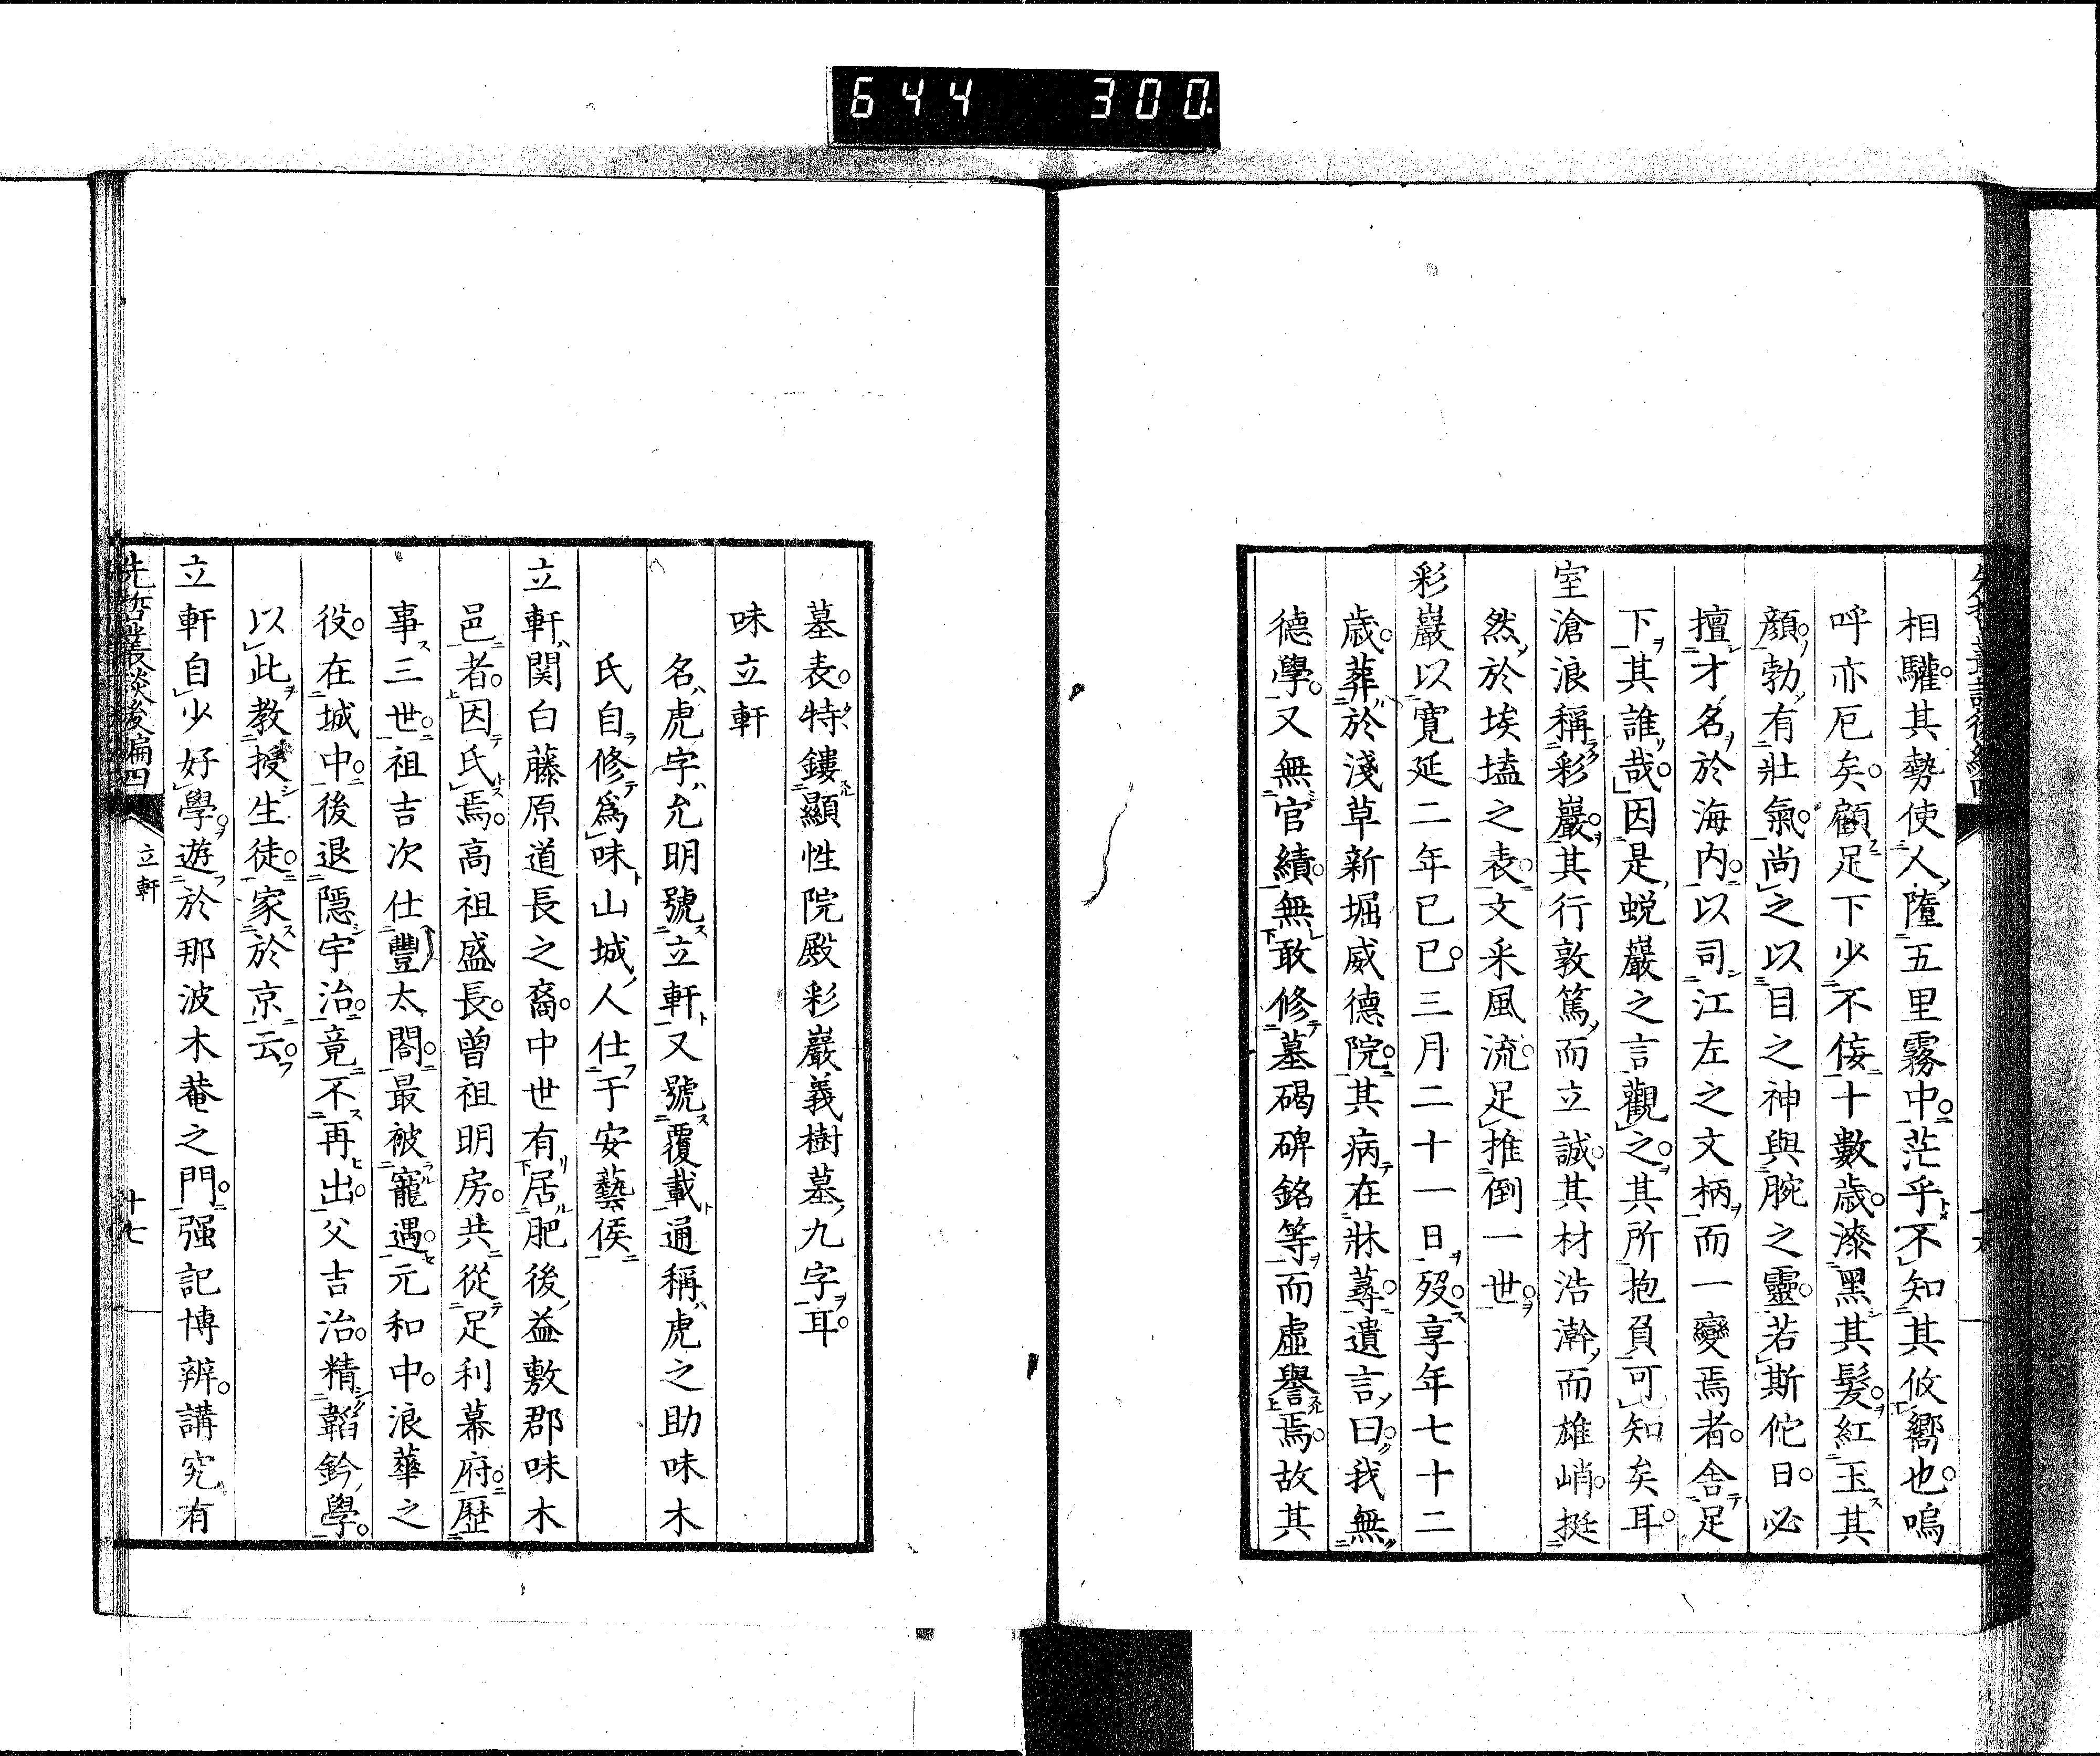 644 300
相驩。其勢使人墮五里霧中。茫乎不知其攸嚮也。嗚
呼亦厄矣。顧足下少不佞十數歳。漆黑其髪。紅玉其
顏。勃有壯氣。尚之以目之神與腕之靈。若斯佗日。必
擅才名於海内。以司江左之文柄而一變焉者。舎足
下其誰哉。因是蛻巖之言觀之。其所抱負可知矣耳。
室滄浪稱彩巖。其行敦篤而立誠。其材浩瀚而雄峭。挺
然於埃壒之表。文采風流。足推倒一世。
彩巖以寛延二年己巳。三月二十一日歿。享年七十二
歳。葬於淺草新堀威德院。其病在牀蓐。遺言曰。我無
德學。又無官績。無敢修墓碣碑銘等而虛譽焉。故其
墓表。特鏤顯性院殿彩巖義樹墓九字耳。
味立軒
名虎字允明號立軒又號覆載通稱虎之助味木
氏自修爲味山城人仕于安藝侯
立軒関白藤原道長之裔。中世有居肥後益敷郡味木
邑者。因氏焉。高祖盛長。曾祖明房。共從足利幕府。歷
事三世。祖吉次仕豐太閤。最被寵遇。元和中。浪華之
役。在城中。後退隱宇治。竟不再出。父吉治。精韜鈐學。
以此教授生徒。家於京云。
立軒自少好學。遊於那波木菴之門。强記博辨。講究有
先哲叢談後編四
立軒
十七